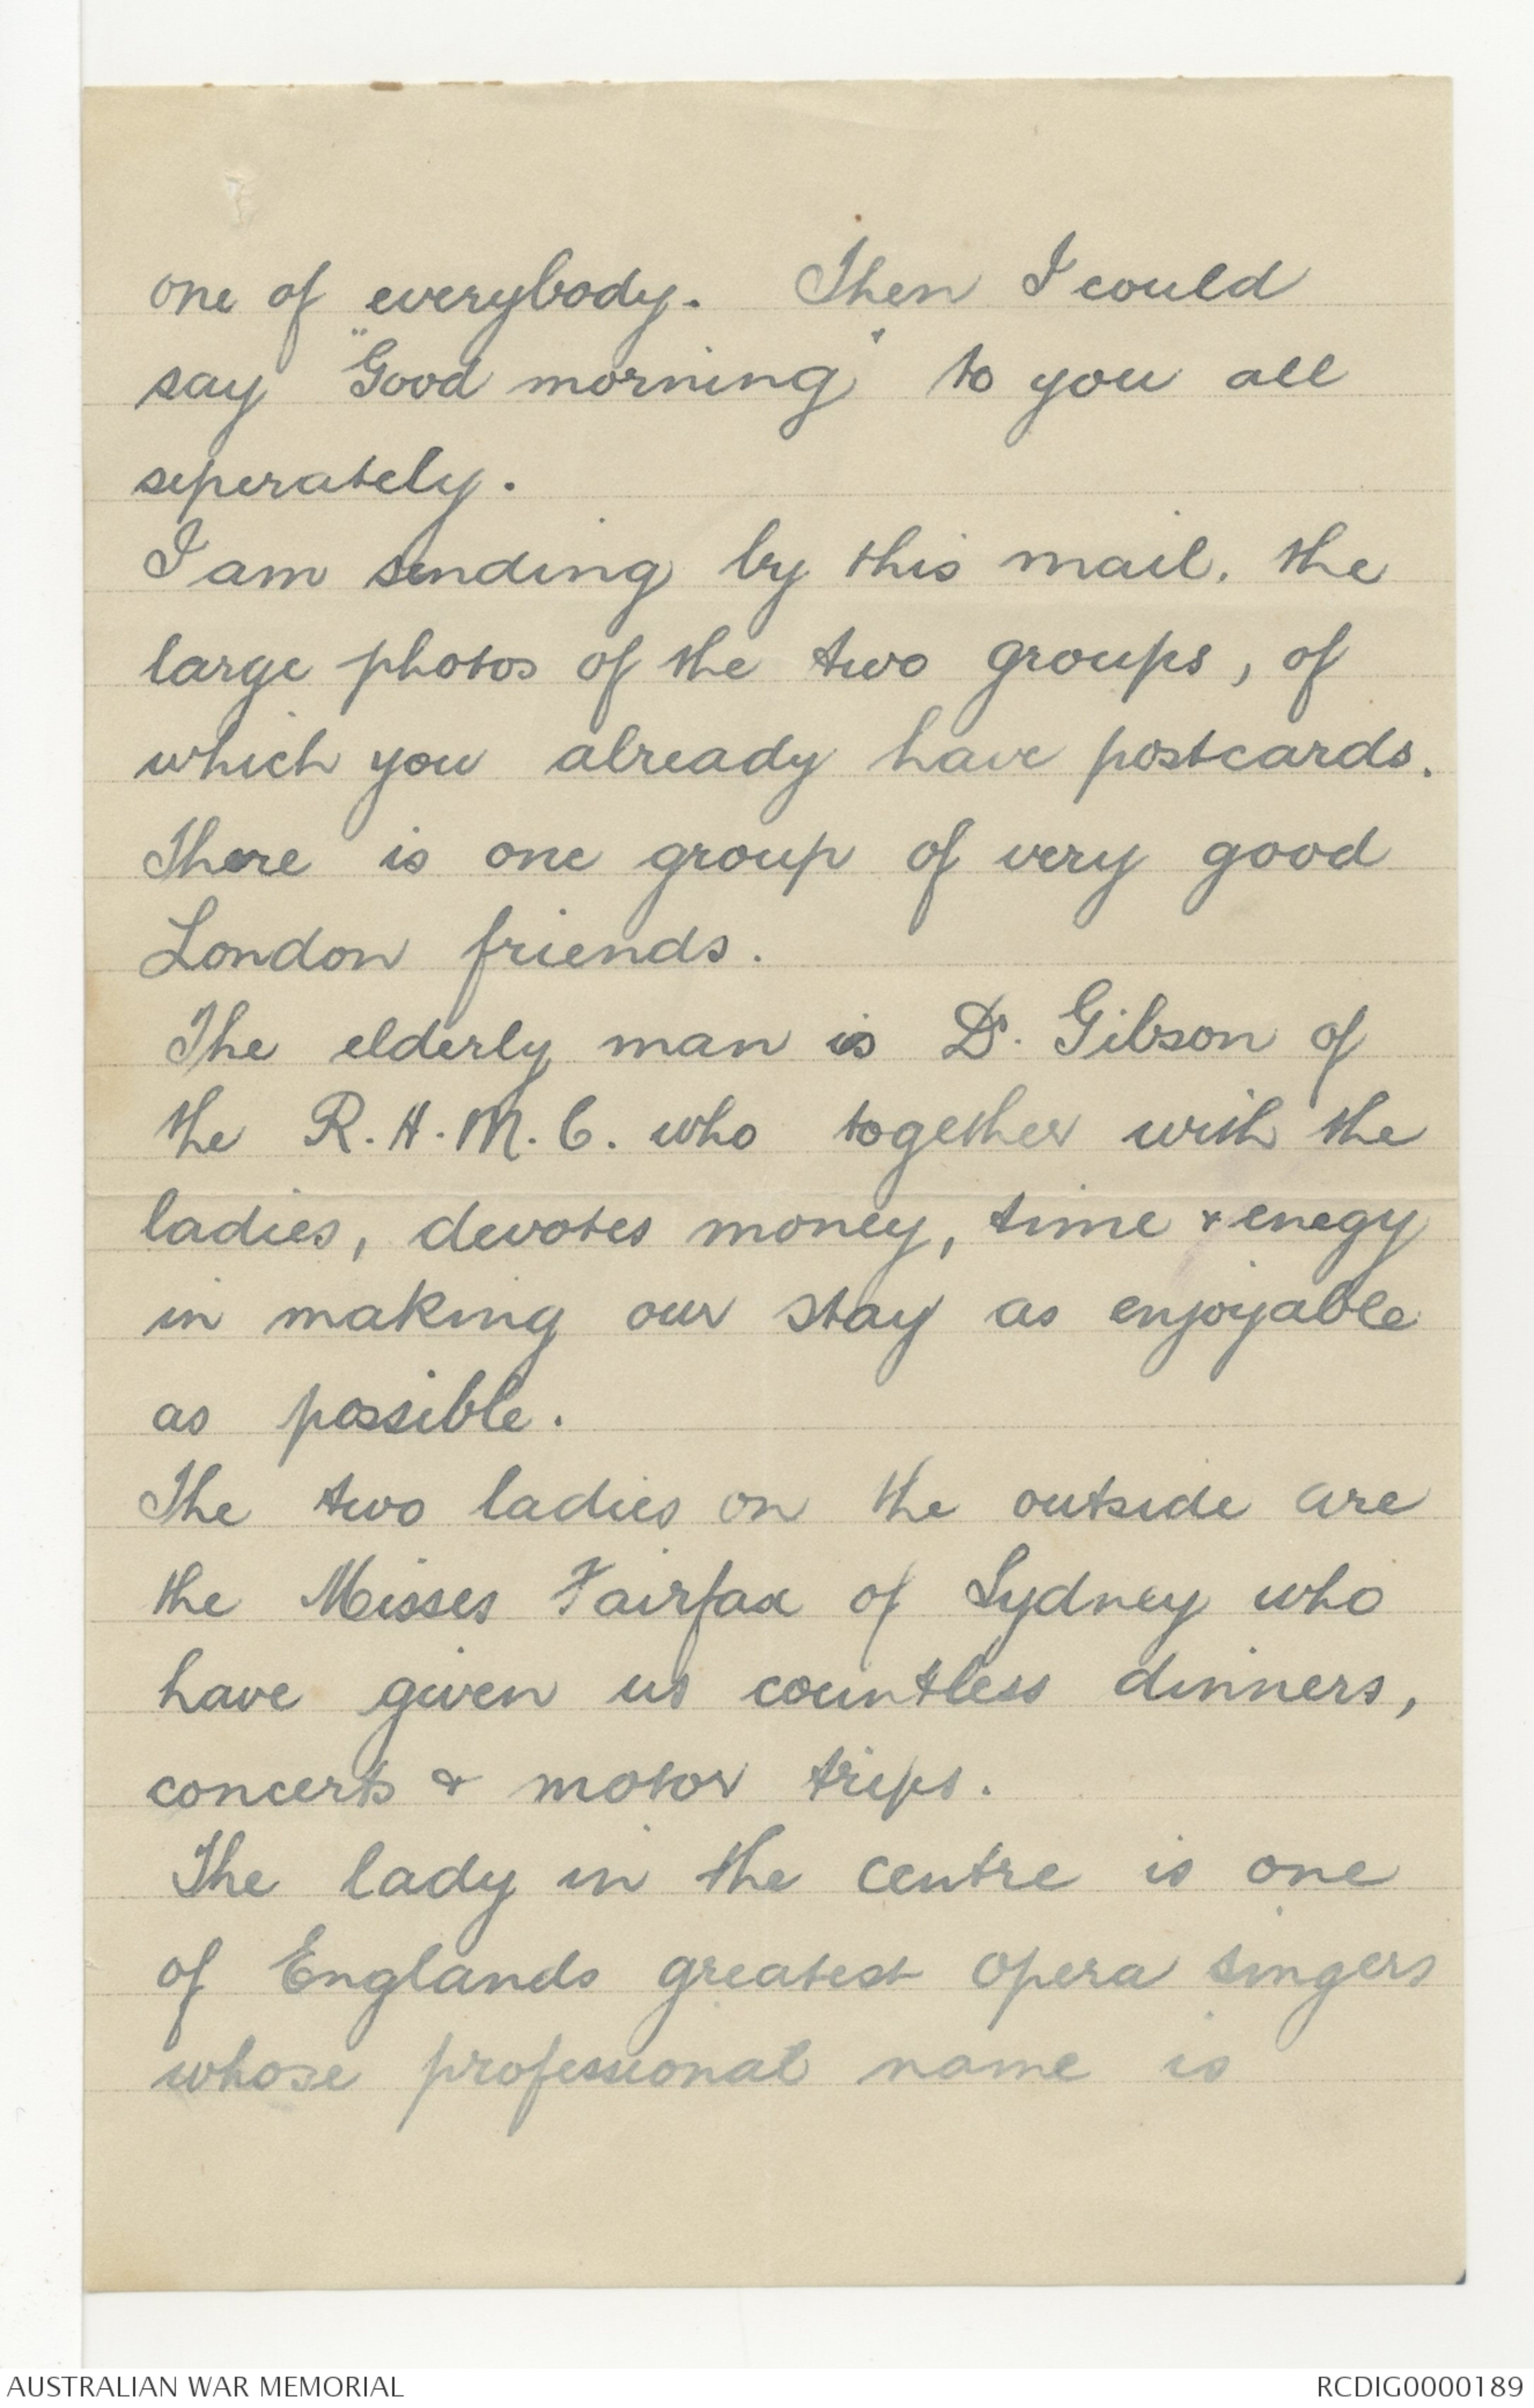 one of everybody. Then I could
say "Good morning" to you all
seperately.
I am sending by this mail, the
large photos of the two groups, of
which you already have postcards.
There is one group of very good
London friends.
The elderly man is Dr. Gibson of
the R.A.M.C. who together with the
ladies, devotes money, time & enegy
in making our stay as enjoyable
as possible.
The two ladies on the outside are
the Misses Fairfax of Sydney who
have given us countless dinners,
concerts & motor trips.
The lady in the centre is one
of Englands greatest opera singers
whose professional name is
AUSTRALIAN WAR MEMORIAL
RCDIG0000189